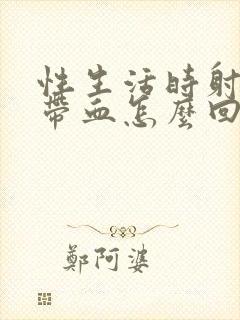 性生活時射
帶血怎麼回
鄭阿婆